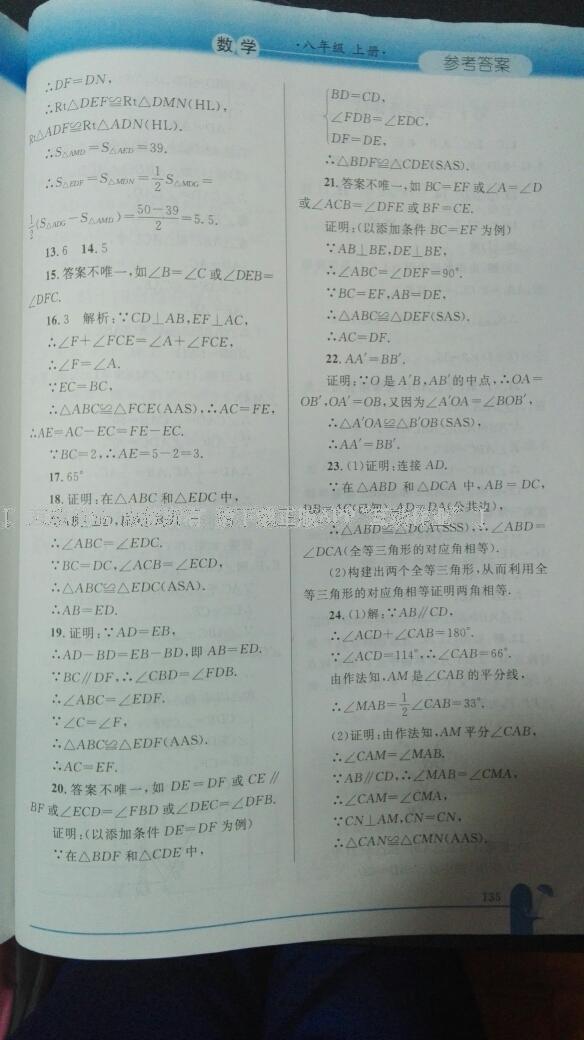 数学
·八年级 上册·
参考答案
∴DF=DN,
∴Rt△DEF≌Rt△DMN(HL),
Rt△ADF≌Rt△ADN(HL).
∴S△AMD=S△AED=39.
∴S△EDF=S△MDN=1/2 S△MDG=
1/2(S△ADG-S△AMD)=(50-39)/2=5.5.
13.6 14.5
15.答案不唯一,如∠B=∠C 或∠DEB=
∠DFC.
16.3 解析:∵CD⊥AB,EF⊥AC,
∴∠F+∠FCE=∠A+∠FCE,
∴∠F=∠A.
∵EC=BC,
∴△ABC≌△FCE(AAS),∴AC=FE,
∴AE=AC-EC=FE-EC.
∵BC=2,∴AE=5-2=3.
17.65°
18.证明:在△ABC 和△EDC 中,
∴∠ABC=∠EDC.
∵BC=DC,∠ACB=∠ECD,
∴△ABC≌△EDC(ASA).
∴AB=ED.
19.证明:∵AD=EB,
∴AD-BD=EB-BD,即 AB=ED.
∵BC∥DF,∴∠CBD=∠FDB.
∴∠ABC=∠EDF.
∵∠C=∠F,
∴△ABC≌△EDF(AAS).
∴AC=EF.
20.答案不唯一,如 DE=DF 或 CE∥
BF或∠ECD=∠FBD 或∠DEC=∠DFB.
证明:(以添加条件 DE=DF 为例)
∵在△BDF 和△CDE 中,
BD=CD,
∠FDB=∠EDC,
DF=DE,
∴△BDF≌△CDE(SAS).
21.答案不唯一,如 BC=EF 或∠A=∠D
或∠ACB=∠DFE 或 BF=CE.
证明:(以添加条件 BC=EF 为例)
∵AB⊥BE,DE⊥BE,
∴∠ABC=∠DEF=90°.
∵BC=EF,AB=DE,
∴△ABC≌△DEF(SAS).
∴AC=DF.
22. AA′=BB′.
证明:∵O 是 A′B,AB′的中点,∴OA=
OB′,OA′=OB,又因为∠A′OA=∠BOB′,
∴△A′OA≌△B′OB(SAS),
∴AA′=BB′.
23.(1)证明:连接 AD.
∵在△ABD 和△DCA 中,AB=DC,
DB=AC(已知),AD=DA(公共边),
∴△ABD≌△DCA(SSS),∴∠ABD=
∠DCA(全等三角形的对应角相等).
(2)构建出两个全等三角形,从而利用全
等三角形的对应角相等证明两角相等.
24.(1)解:∵AB∥CD,
∴∠ACD+∠CAB=180°.
∵∠ACD=114°,∴∠CAB=66°.
由作法知,AM 是∠CAB 的平分线,
∴∠MAB=1/2∠CAB=33°.
(2)证明:由作法知,AM 平分∠CAB,
∴∠CAM=∠MAB.
∵AB∥CD,∴∠MAB=∠CMA,
∴∠CAM=∠CMA,
∵CN⊥AM,CN=CN,
∴△CAN≌△CMN(AAS).
135